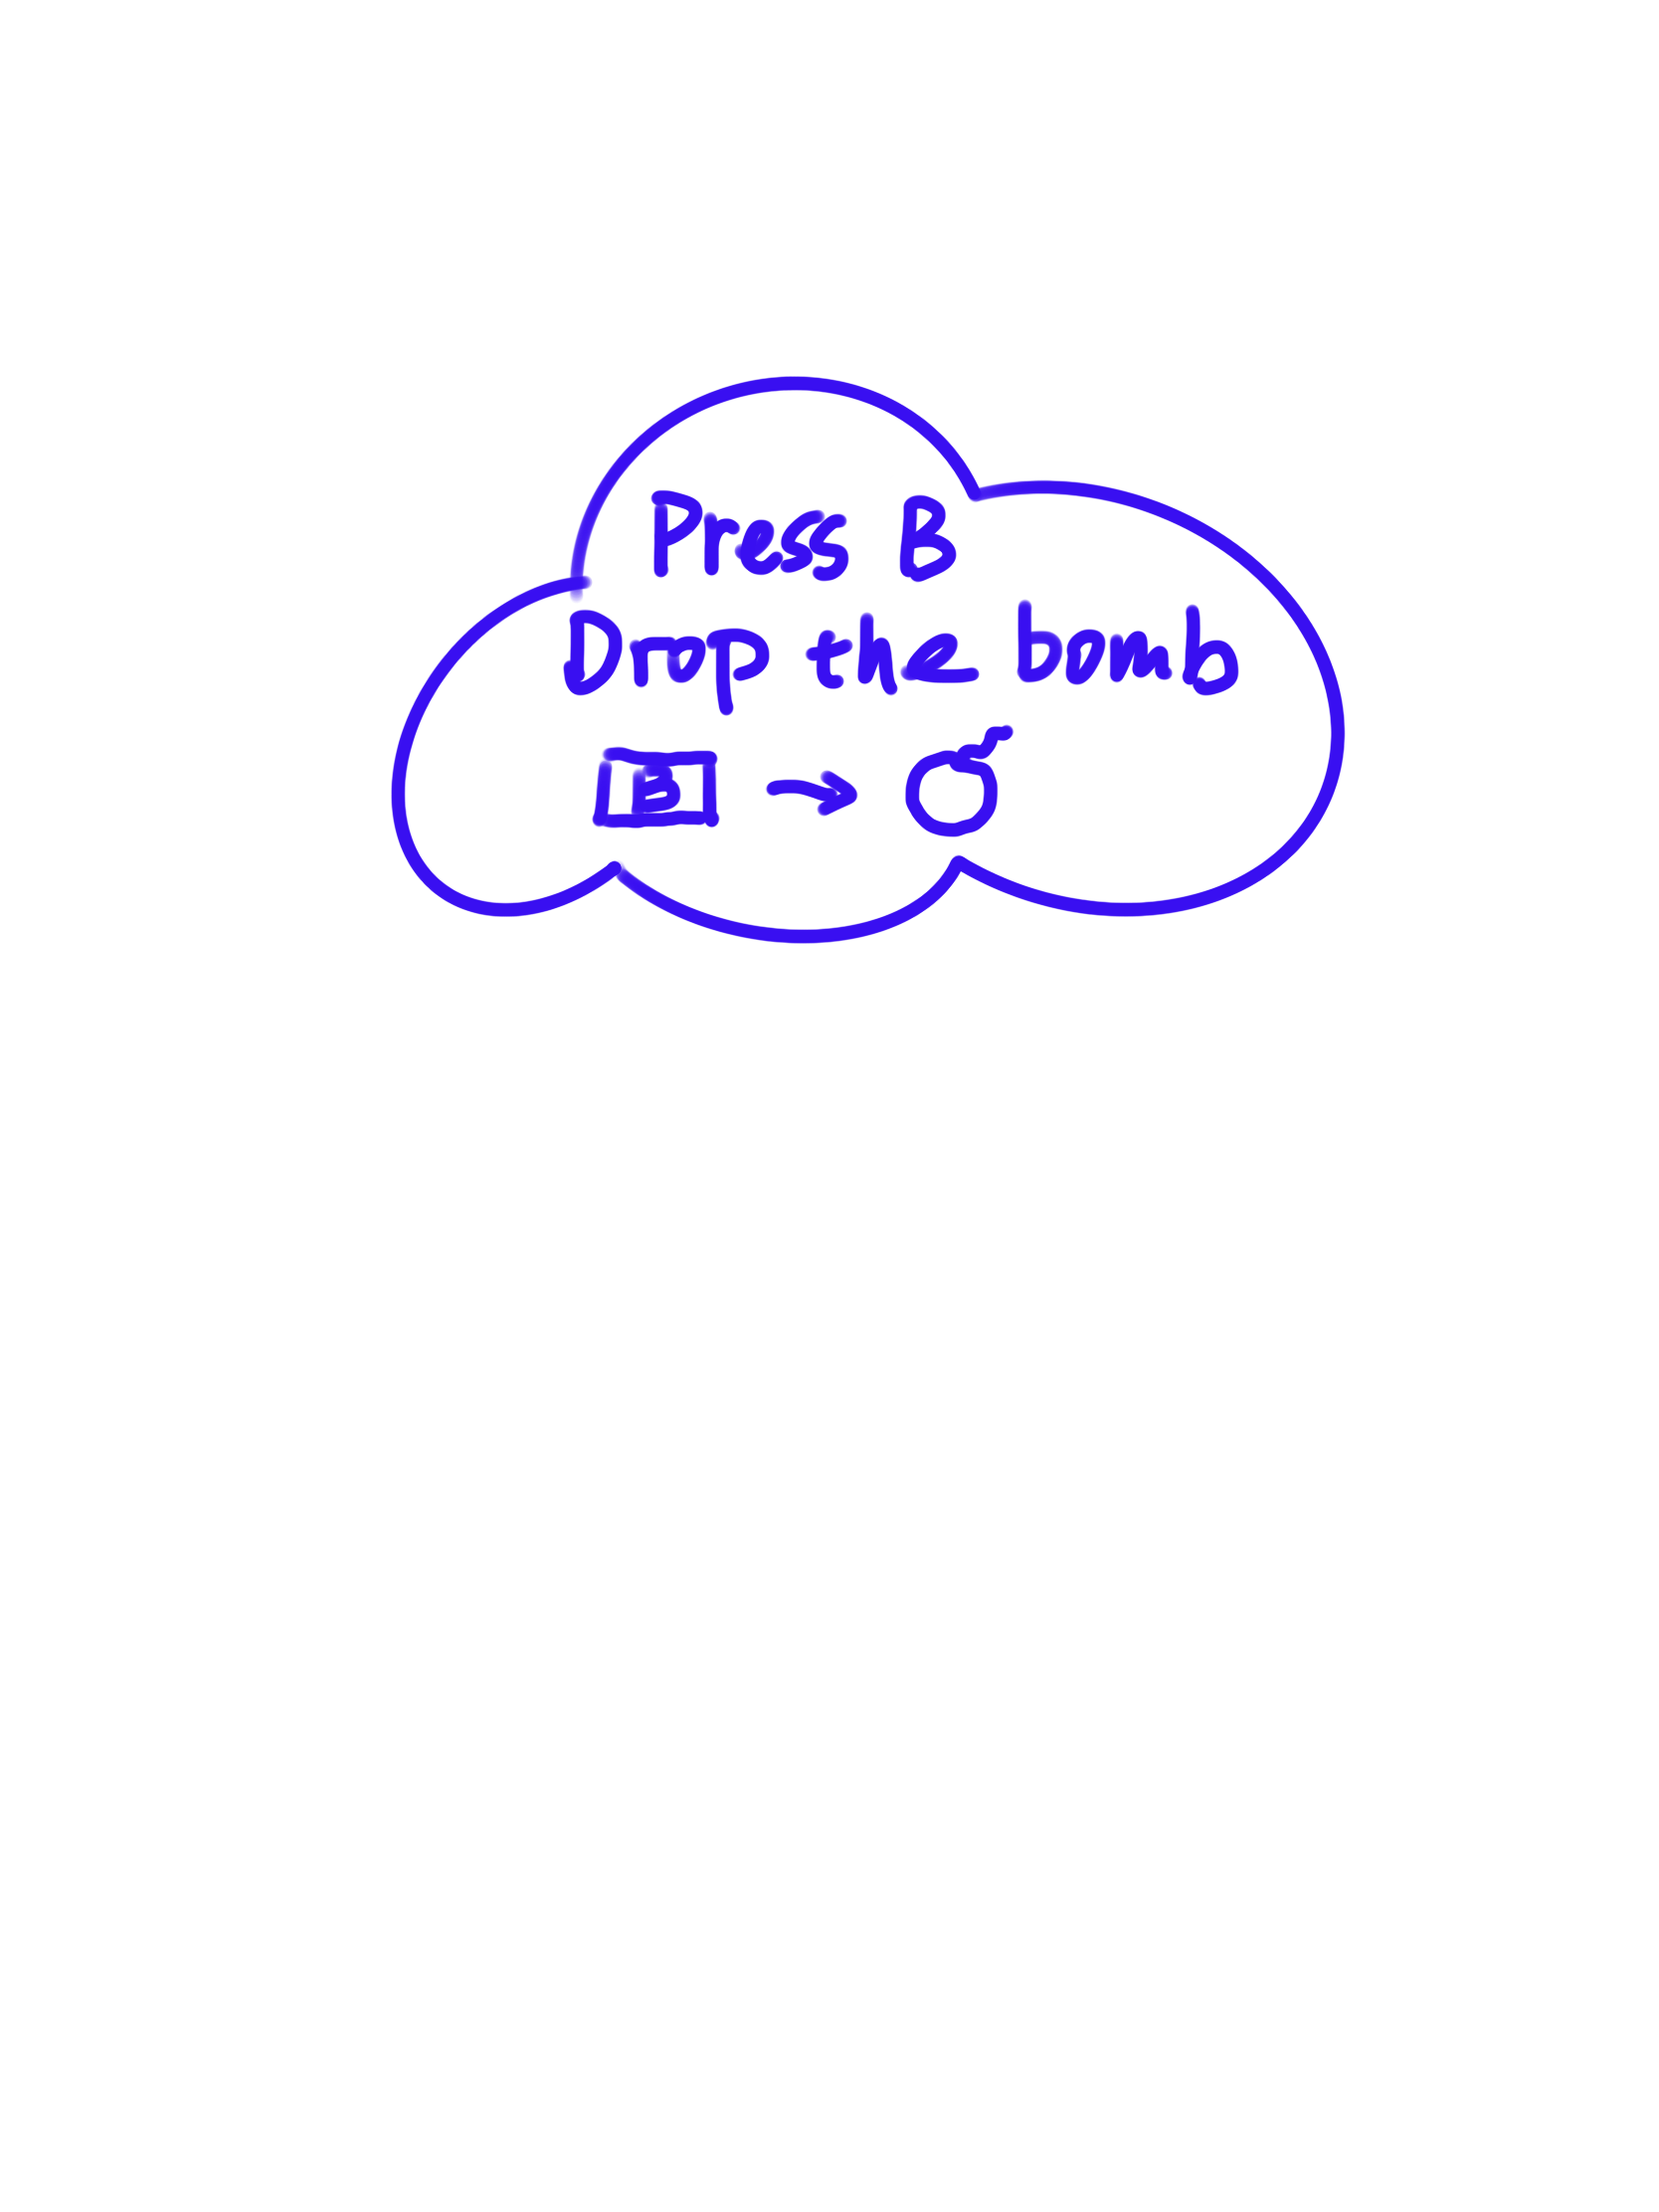 Press B
Drop the bomb
B